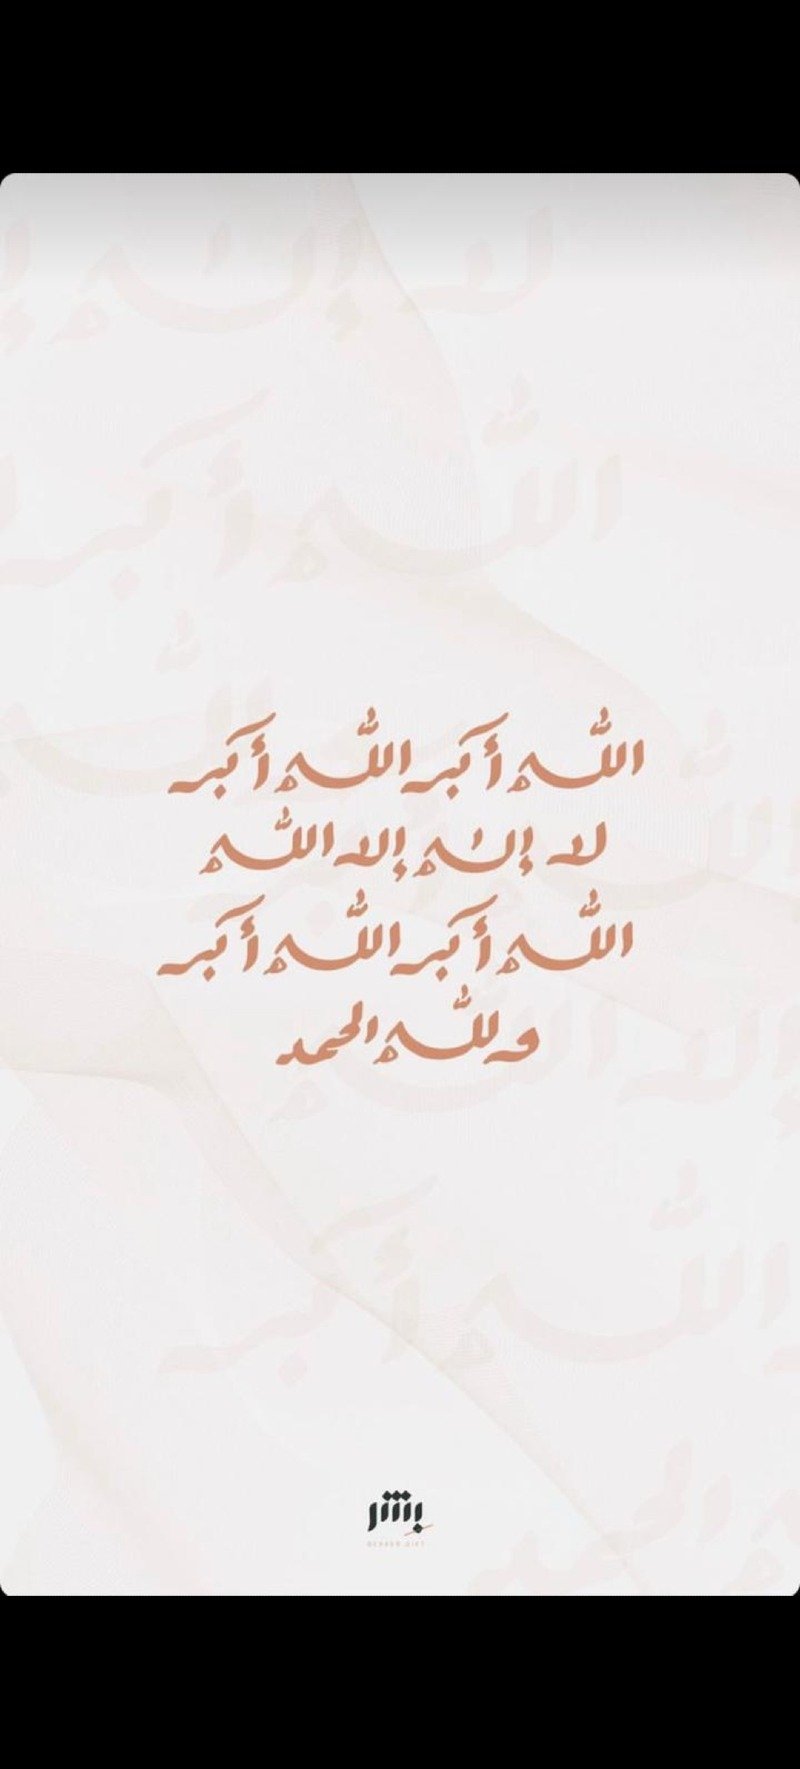 الله أكبر الله أكبر
لا إله إلا الله
الله أكبر الله أكبر
ولله الحمد
بشر